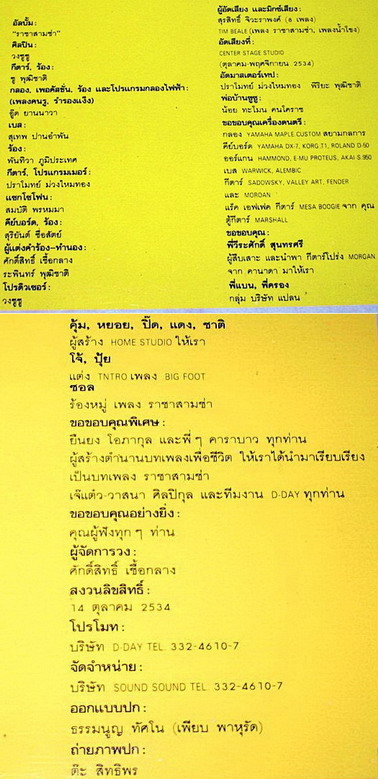 อัลบั้ม:
"ราชาสามช่า"
ศิลปิน:
วงซูซู
กีตาร์, ร้อง:
ซู พุฒิชาติ
กลอง, เพอคัสชั่น, ร้อง และโปรแกรมกลองไฟฟ้า:
(เพลงคนรู, รำวงแจ๊ง)
อู๊ด ยานนาวา
เบส:
สุเทพ ปานอำพัน
ร้อง:
พันทิวา ภูมิประเทศ
กีตาร์, โปรแกรมเมอร์:
ปราโมทย์ ม่วงไหมทอง
แซกโซโฟน:
สมบัติ พรหมมา
คีย์บอร์ด, ร้อง:
สุริยันต์ ซื่อสัตย์
ผู้แต่งคำร้อง-ทำนอง:
ศักดิ์สิทธิ์ เชื้อกลาง
ระพินทร์ พุฒิชาติ
โปรดิวเซอร์:
วงซูซู
ผู้อัดเสียง และมิกซ์เสียง:
สุรสิทธิ์ จิวะราพงค์ (8 เพลง)
TIM BEALE (เพลง ราชาสามช่า, เพลงน้ำโขง)
อัดเสียงที่:
CENTER STAGE STUDIO
(ตุลาคม-พฤศจิกายน 2534)
อัดมาสเตอร์เทป:
ปราโมทย์ ม่วงไหมทอง พีริยะ พุฒิชาติ
พ่อบ้านซูซู:
น้อย ทะโมน คนโคราช
ขอขอบคุณเครื่องดนตรี:
กลอง YAMAHA MAPLE CUSTOM สยามกลการ
คีย์บอร์ด YAMAHA DX-7, KORG T1, ROLAND D-50
ออร์แกน HAMMOND, E-MU PROTEUS, AKAI S-950
เบส WARWICK, ALEMBIC
กีตาร์ SADOWSKY, VALLEY ART, FENDER
และ MORGAN
แร็ค เอฟเฟค กีตาร์ MESA BOOGIE จาก คุณ
ตู้กีตาร์ MARSHALL
ขอขอบคุณ:
พี่วีระศักดิ์ สุนทรศรี
ผู้สืบเสาะ และนำพา กีตาร์โปร่ง MORGAN
จาก คานาดา มาให้เรา
พี่แบน, พี่ครอง
กลุ่ม บริษัท แปลน
คุ้ม, หยอย, ปิ๊ด, แดง, ชาติ
ผู้สร้าง HOME STUDIO ให้เรา
โจ้, ปุ้ย
แต่ง TNTRO เพลง BIG FOOT
ซอล
ร้องหมู่ เพลง ราชาสามช่า
ขอขอบคุณพิเศษ:
ยืนยง โอภากุล และพี่ๆ คาราบาว ทุกท่าน
ผู้สร้างตำนานบทเพลงเพื่อชีวิต ให้เราได้นำมาเรียบเรียง
เป็นบทเพลง ราชาสามช่า
เจ๊แต๋ว-วาสนา ศิลปิกุล และทีมงาน D-DAY ทุกท่าน
ขอขอบคุณอย่างยิ่ง:
คุณผู้ฟังทุก ๆ ท่าน
ผู้จัดการวง:
ศักดิ์สิทธิ์ เชื้อกลาง
สงวนลิขสิทธิ์:
14 ตุลาคม 2534
โปรโมท:
บริษัท D-DAY TEL. 332-4610-7
จัดจำหน่าย:
บริษัท SOUND SOUND TEL. 332-4610-7
ออกแบบปก:
ธรรมนูญ ทัศโน (เพียบ พาหุรัด)
ถ่ายภาพปก:
ต๊ะ สิทธิพร